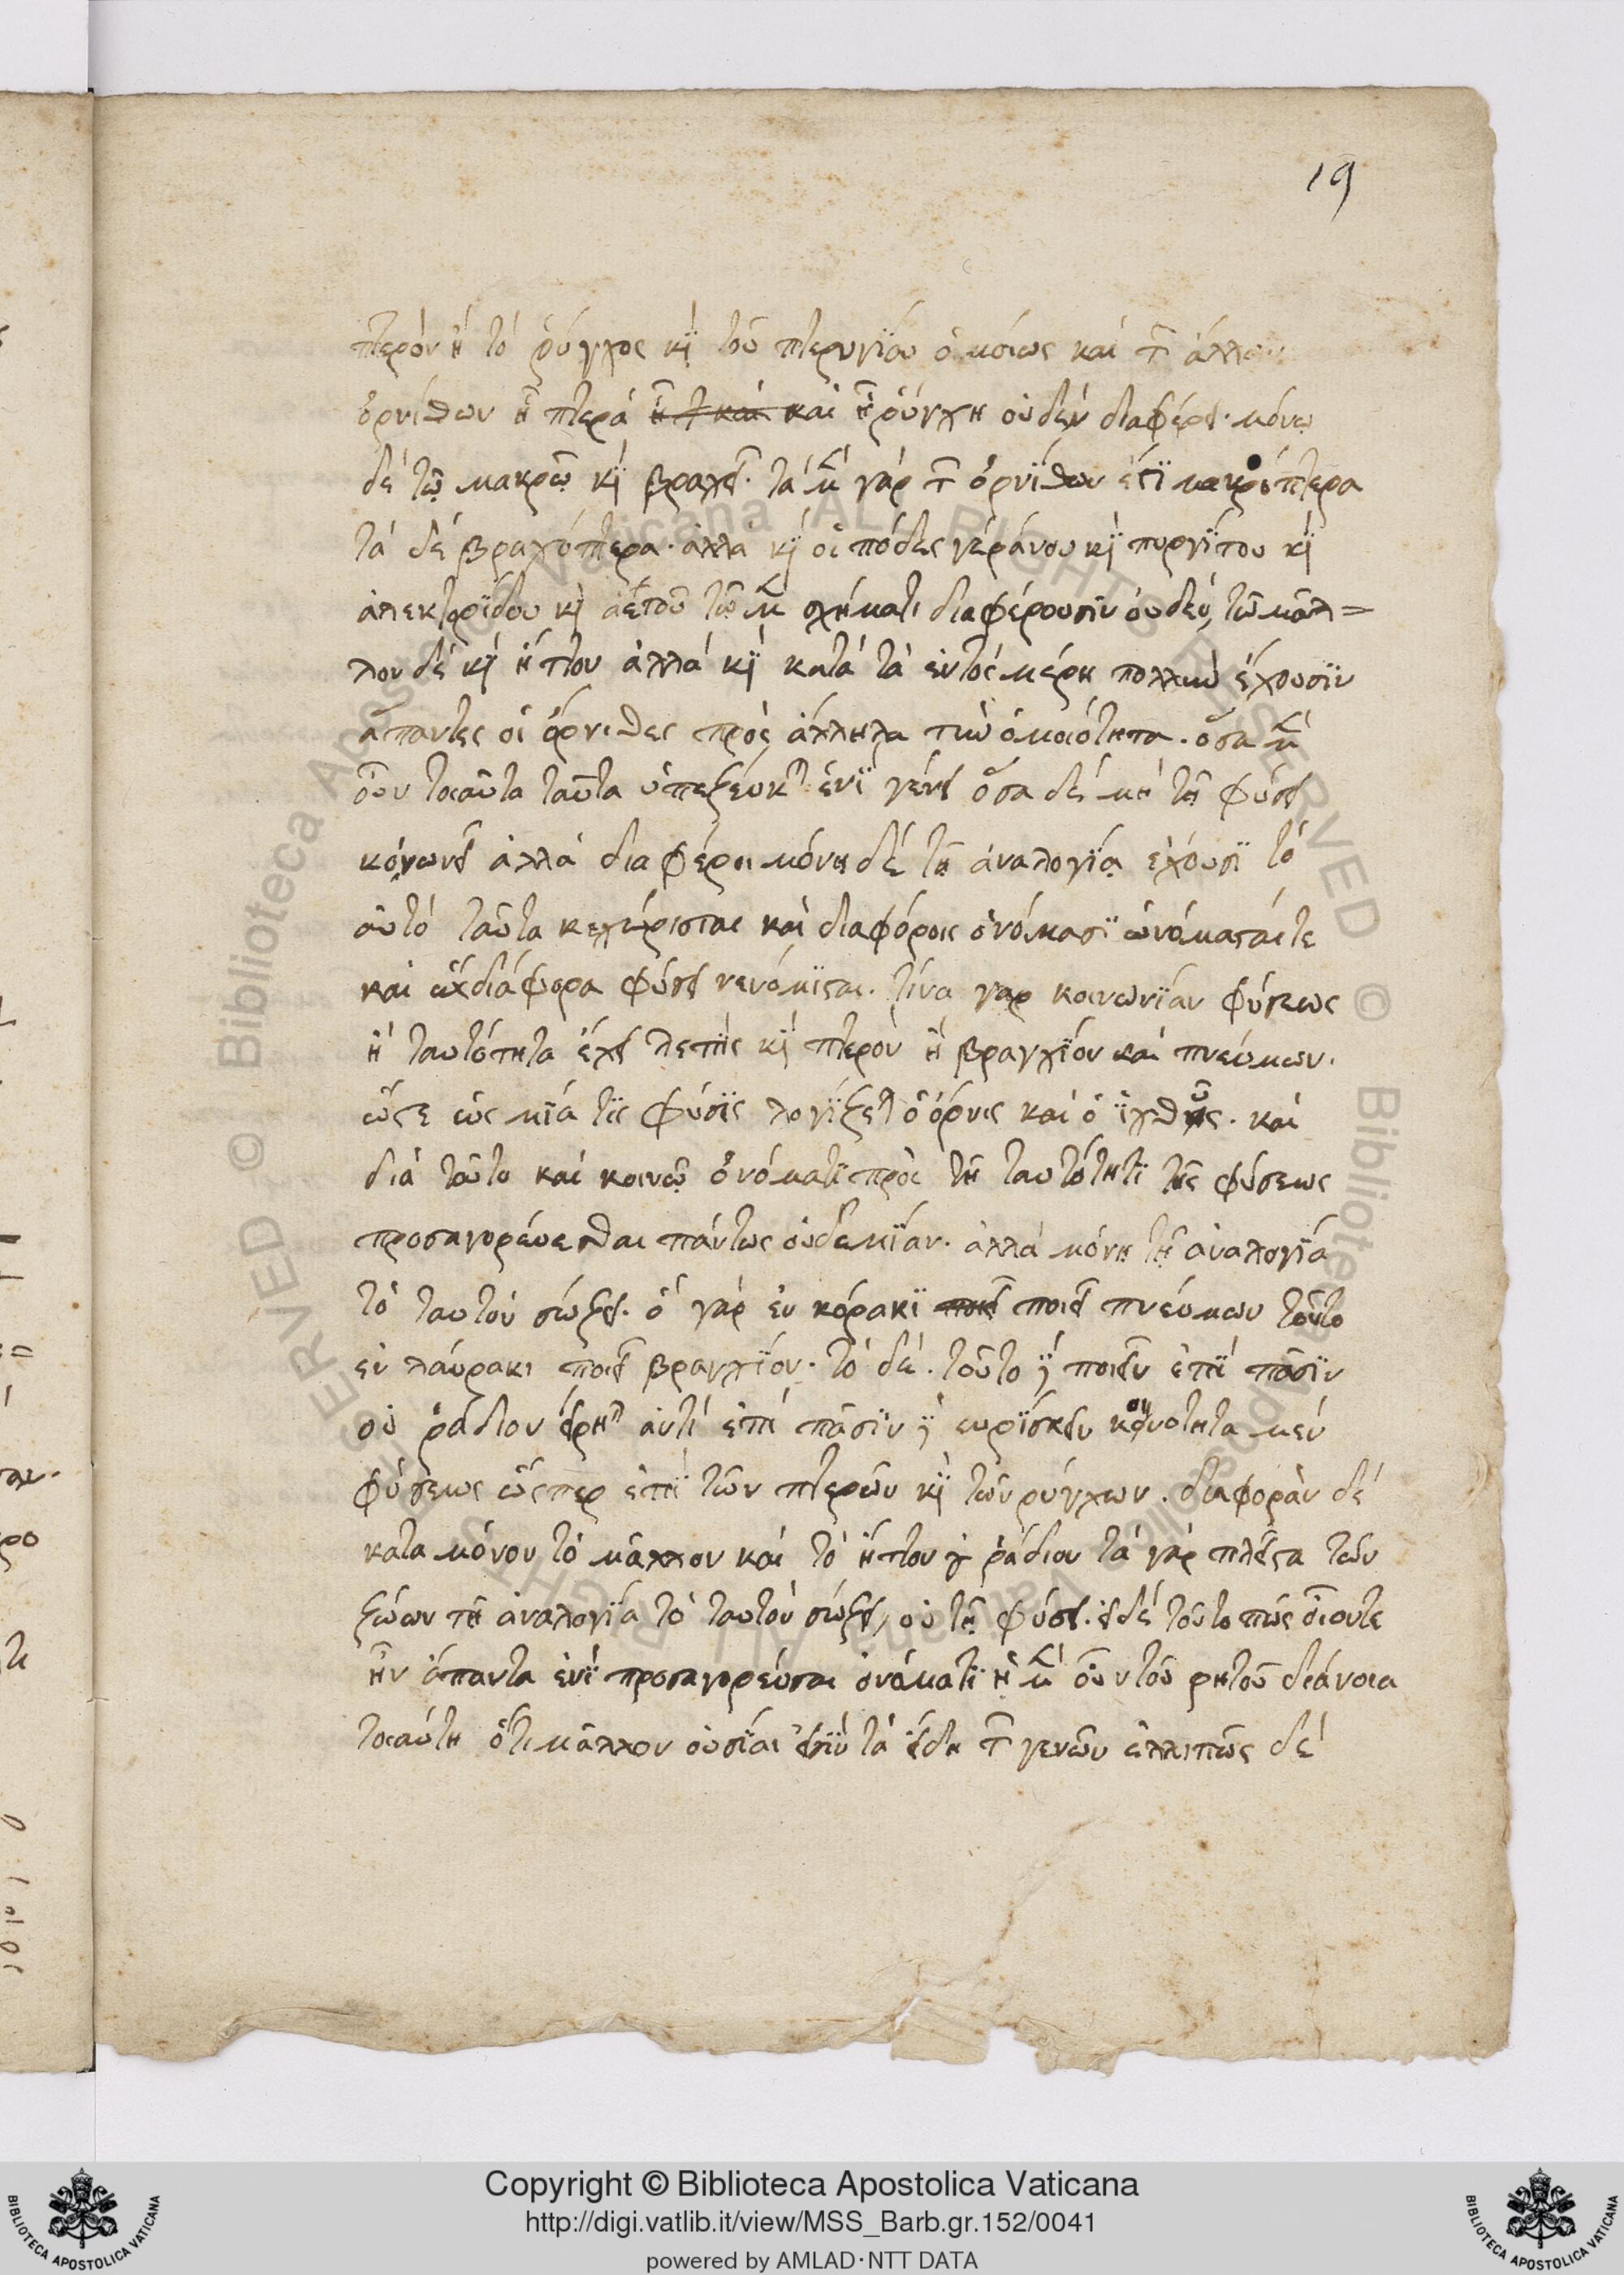 19
πτερὸν ἢ τὸ ῥύγχος κὶ τοῦ πτερυγίου ὁμοίως καὶ τ̃ ἄλλων
ὀρνίθων ἢ πτερὰ καὶ ἢ ῥύγχη οὐδὲν διαφέρει· μόνω
δὲ τῷ μακρῷ κὶ βραχεῖ· τὰ μ̃ γὰρ τ̃ ὀρνίθων ἐστὶ μακρόπτερα
τὰ δὲ βραχύπτερα· ἀλλὰ κὶ οἱ πόδες γεράνου κὶ πυργίτου κὶ
ἀλεκτορίδου κὶ ἀετοῦ τῷ μ̃ σχήματι διαφέρουσιν οὐδὲν, τῷ μᾶλ=
λον δὲ κὶ ἧττον ἀλλὰ κὶ κατὰ τὰ ἐντὸς μέρη πολλὴν ἔχουσιν
ἅπαντες οἱ ὄρνιθες πρὸς ἄλληλα τὴν ὁμοιότητα. ὅσα μ̃
οὖν τοιαῦτα ταῦτα ὑπεζεύκται ἑνὶ γένει ὅσα δὲ μὴ τῇ φύσει
ἀλλὰ διαφέρει μόνη δὲ τῇ ἀναλογίᾳ ἔχουσι τὸ
αὐτὸ ταῦτα κεχώρισται καὶ διαφόροις ὀνόμασι ὠνόμασταί τε
καὶ ὡς διάφορα φύσει νενόμισται. τίνα γαρ κοινωνίαν φύσεως
ἢ ταυτότητα ἔχει λεπὶς κὶ πτερὸν ἢ βραγχίον καὶ πνεύμων.
ὥστε ὡς μία τις φύσις λογίζεται ὁ ὄρνις καὶ ὁ ἰχθῦς. καὶ
διὰ τοῦτο καὶ κοινῷ ὀνόματι πρὸς τῇ ταυτότητι τῆς φύσεως
προσαγορεύεσθαι πάντως οὐδεμίαν. ἀλλὰ μόνῃ τῇ ἀναλογίᾳ
τὸ ταυτὸν σώζει. ὃ γὰρ ἐν κόρακι ποιεῖ πνεύμων τοῦτο
ἐν λαύρακι ποιεῖ βραγχίον. τὸ δὲ. τοῦτο γ̀ ποιεῖν ἐπὶ πᾶσιν
οὐ ῥάδιον εἴρηται ἀντὶ ἐπὶ πᾶσιν γ̀ εὑρίσκειν κοινότητα μὲν
φύσεως ὥσπερ ἐπὶ τῶν πτερῶν κὶ τῶν ρύγχων. διαφορὰν δὲ
κατα μόνον τὸ μᾶλλον καὶ τὸ ἧττον οὐ ῥάδιον τὰ γὰρ πλεῖστα τῶν
ζώων τῇ ἀναλογία τὸ ταυτὸν σώζει, οὐ τῇ φύσει. εἰ δὲ τοῦτο πῶς οἷον τε
ἦν ἅπαντα ἑνὶ προσαγορεύσαι ὀνόματι ἡ μ̃ οὖν τοῦ ρητοῦ διάνοια
τοιαύτη ὅτι μᾶλλον οὐσίαι εἰσὶν τὰ εἴδη τ̃ γενῶν ἐλλιπῶς δὲ
Copyright © Biblioteca Apostolica Vaticana
http://digi.vatlib.it/view/MSS_Barb.gr.152/0041
powered by AMLAD·NTT DATA